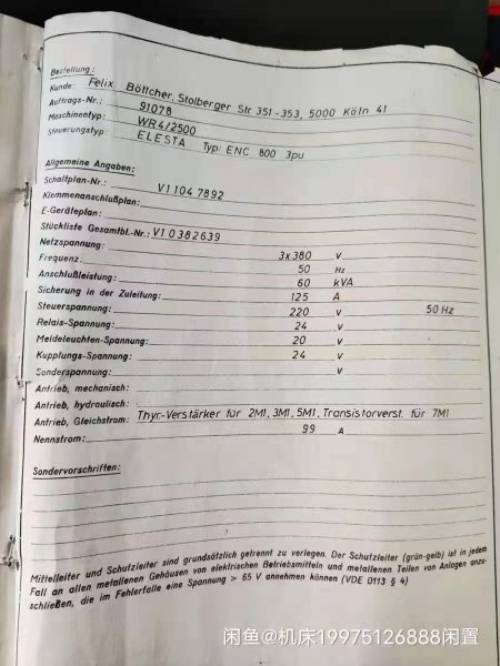 Bestellung:
Kunde: Felix Böttcher, Stolberger Str 351-353, 5000 Köln 41
Auftrags-Nr.: 91078
Maschinentyp: WR4/2500
Steuerungstyp ELESTA Typ: ENC 800 3pu
Allgemeine Angaben:
Schaltplan-Nr.: V1104 7892
Klemmenanschlußplan:
E-Geräteplan:
Stückliste Gesamtbl.-Nr.: V10382639
Netzspannung: 3x380 V
Frequenz: 50 Hz
Anschlußleistung: 60 kVA
Sicherung in der Zuleitung: 125 A
Steuerspannung: 220 V 50 Hz
Relais-Spannung: 24 V
Meldeleuchten-Spannung: 20 V
Kupplungs-Spannung: 24 V
Sonderspannung: V
Antrieb, mechanisch:
Antrieb, hydraulisch:
Antrieb, Gleichstrom: Thyr.-Verstärker für 2M1, 3M1, 5M1, Transistorverst. für 7M1
Nennstrom: 99 A
Sondervorschriften:
Mittelleiter und Schutzleiter sind grundsätzlich getrennt zu verlegen. Der Schutzleiter (grün-gelb) ist in jedem
Fall an allen metallenen Gehäusen von elektrischen Betriebsmitteln und metallenen Teilen von Anlagen anzu-
schließen, die im Fehlerfalle eine Spannung > 65 V annehmen können (VDE 0113 § 4)
闲鱼@机床19975126888闲置